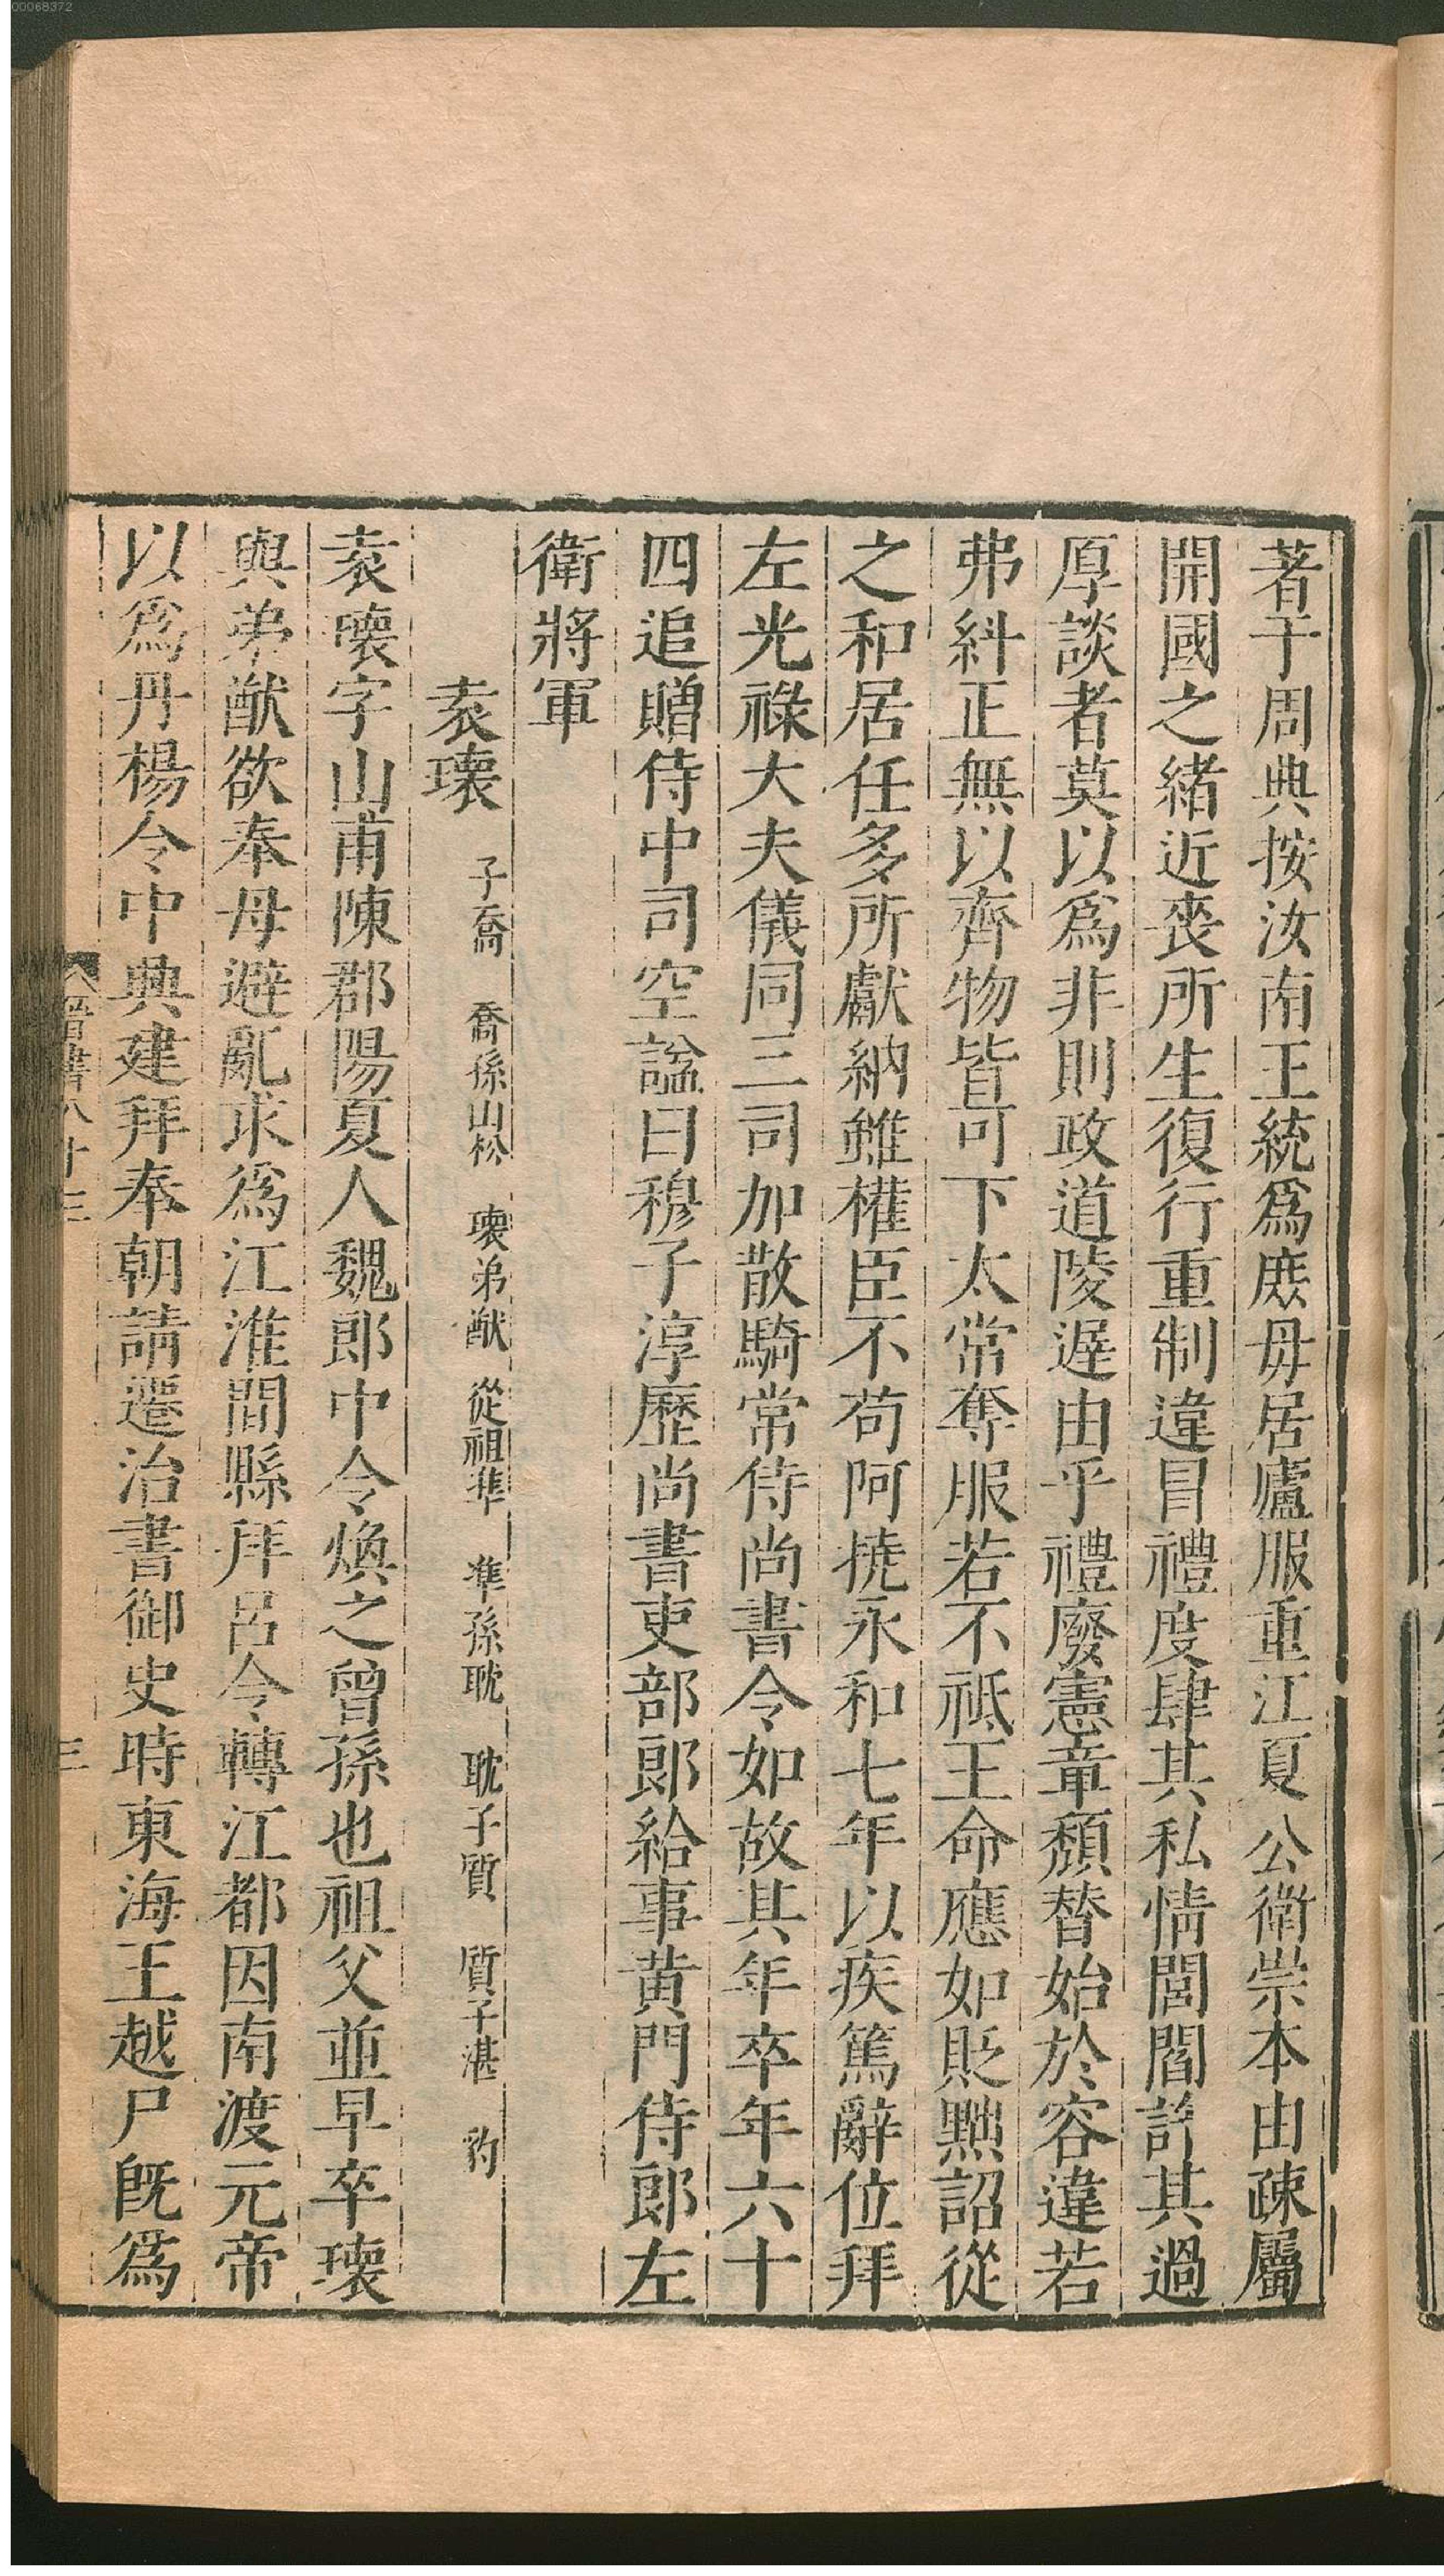 00068372
著于周典按汝南王統爲庶母居廬服重江夏公衛崇本由疎屬
開國之緒近喪所生復行重制違冒禮度肆其私情閭閻許其過
厚談者莫以爲非則政道陵遲由乎禮廢憲章頹替始於容違若
弗糾正無以齊物皆可下太常奪服若不祗王命應如貶黜詔從
之和居任多所獻納雖權臣不苟阿撓永和七年以疾篤辭位拜
左光祿大夫儀同三司加散騎常侍尚書令如故其年卒年六十
四追贈侍中司空諡曰穆子淳歷尚書吏部郎給事黃門侍郎左
衛將軍
袁瓌 子喬 喬孫山松 瓌弟猷 從祖準 準孫耽 耽子質 質子湛 豹
袁瓌字山甫陳郡陽夏人魏郎中令煥之曾孫也祖父並早卒瓌
與弟猷欲奉母避亂求爲江淮間縣拜呂令轉江都因南渡元帝
以爲丹楊令中興建拜奉朝請遷治書御史時東海王越尸旣爲
晉書八十三 三